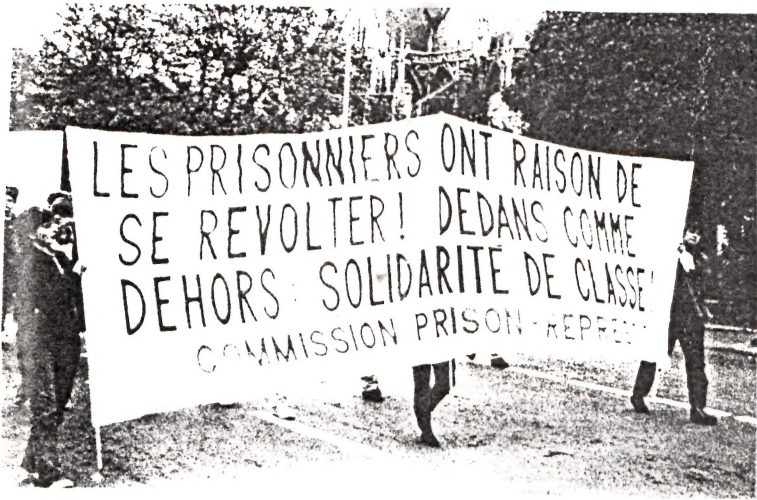 LES PRISONNIERS ONT RAISON DE
SE REVOLTER! DEDANS COMME
DEHORS: SOLIDARITÉ DE CLASSE!
COMMISSION PRISON-